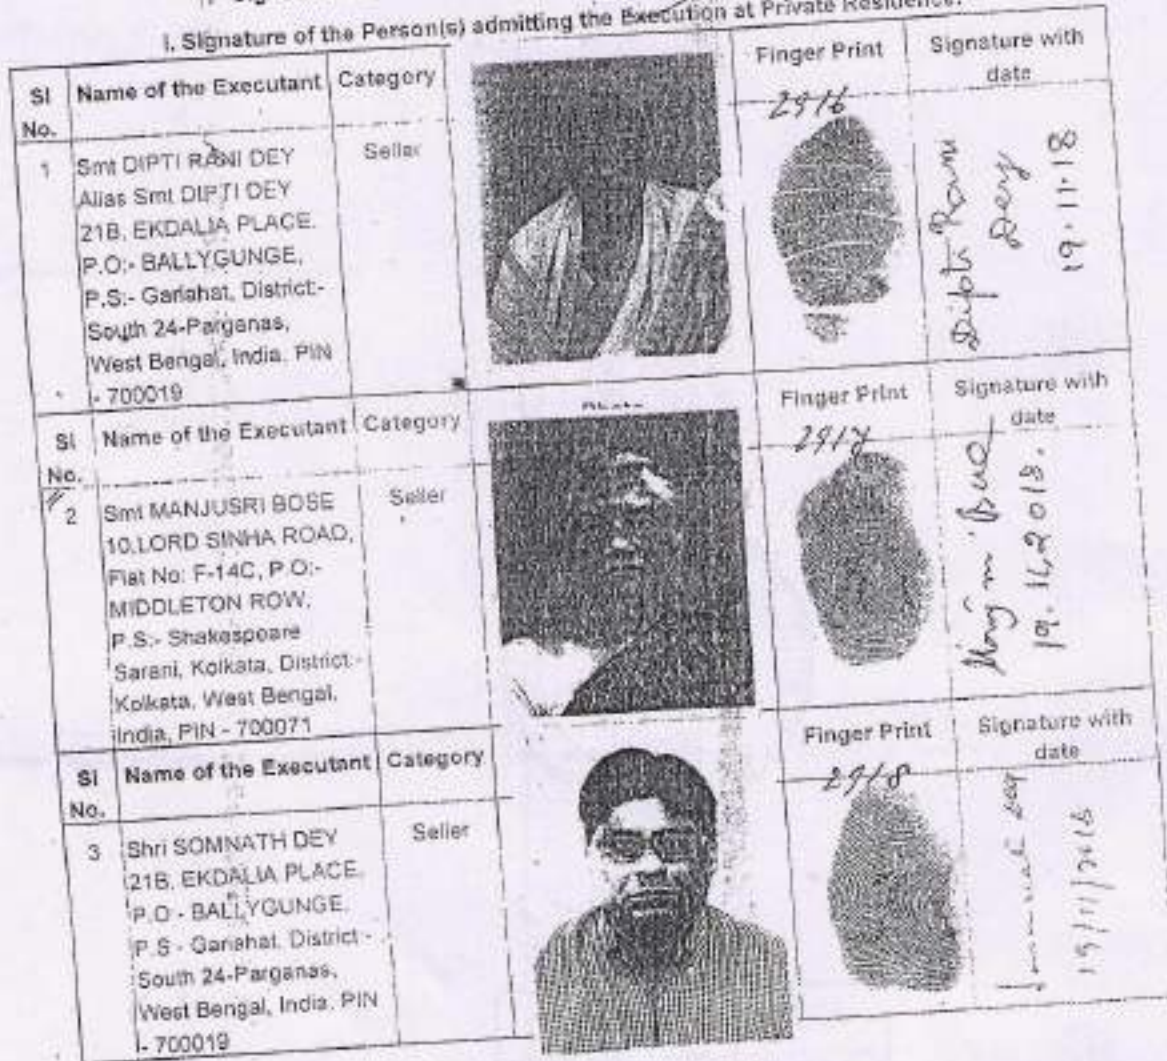 I. Signature of the Person(s) admitting the Execution at Private Residence.
Sl No. Name of the Executant Category Finger Print Signature with date
1 Smt DIPTI RANI DEY
Alias Smt DIPTI DEY
21B, EKDALIA PLACE,
P.O:- BALLYGUNGE,
P.S:- Gariahat, District:-
South 24-Parganas,
West Bengal, India, PIN
- 700019
Seller
2916
Dipti Rani
Dey
19.11.18
Sl No. Name of the Executant Category Finger Print Signature with date
2 Smt MANJUSRI BOSE
10,LORD SINHA ROAD,
Flat No: F-14C, P.O:-
MIDDLETON ROW,
P.S:- Shakespeare
Sarani, Kolkata, District:-
Kolkata, West Bengal,
India, PIN - 700071
Seller
2917
Sl No. Name of the Executant Category Finger Print Signature with date
3 Shri SOMNATH DEY
21B, EKDALIA PLACE,
P.O - BALLYGUNGE,
P.S - Gariahat, District -
South 24-Parganas,
West Bengal, India, PIN
- 700019
Seller
2918
19/11/2018